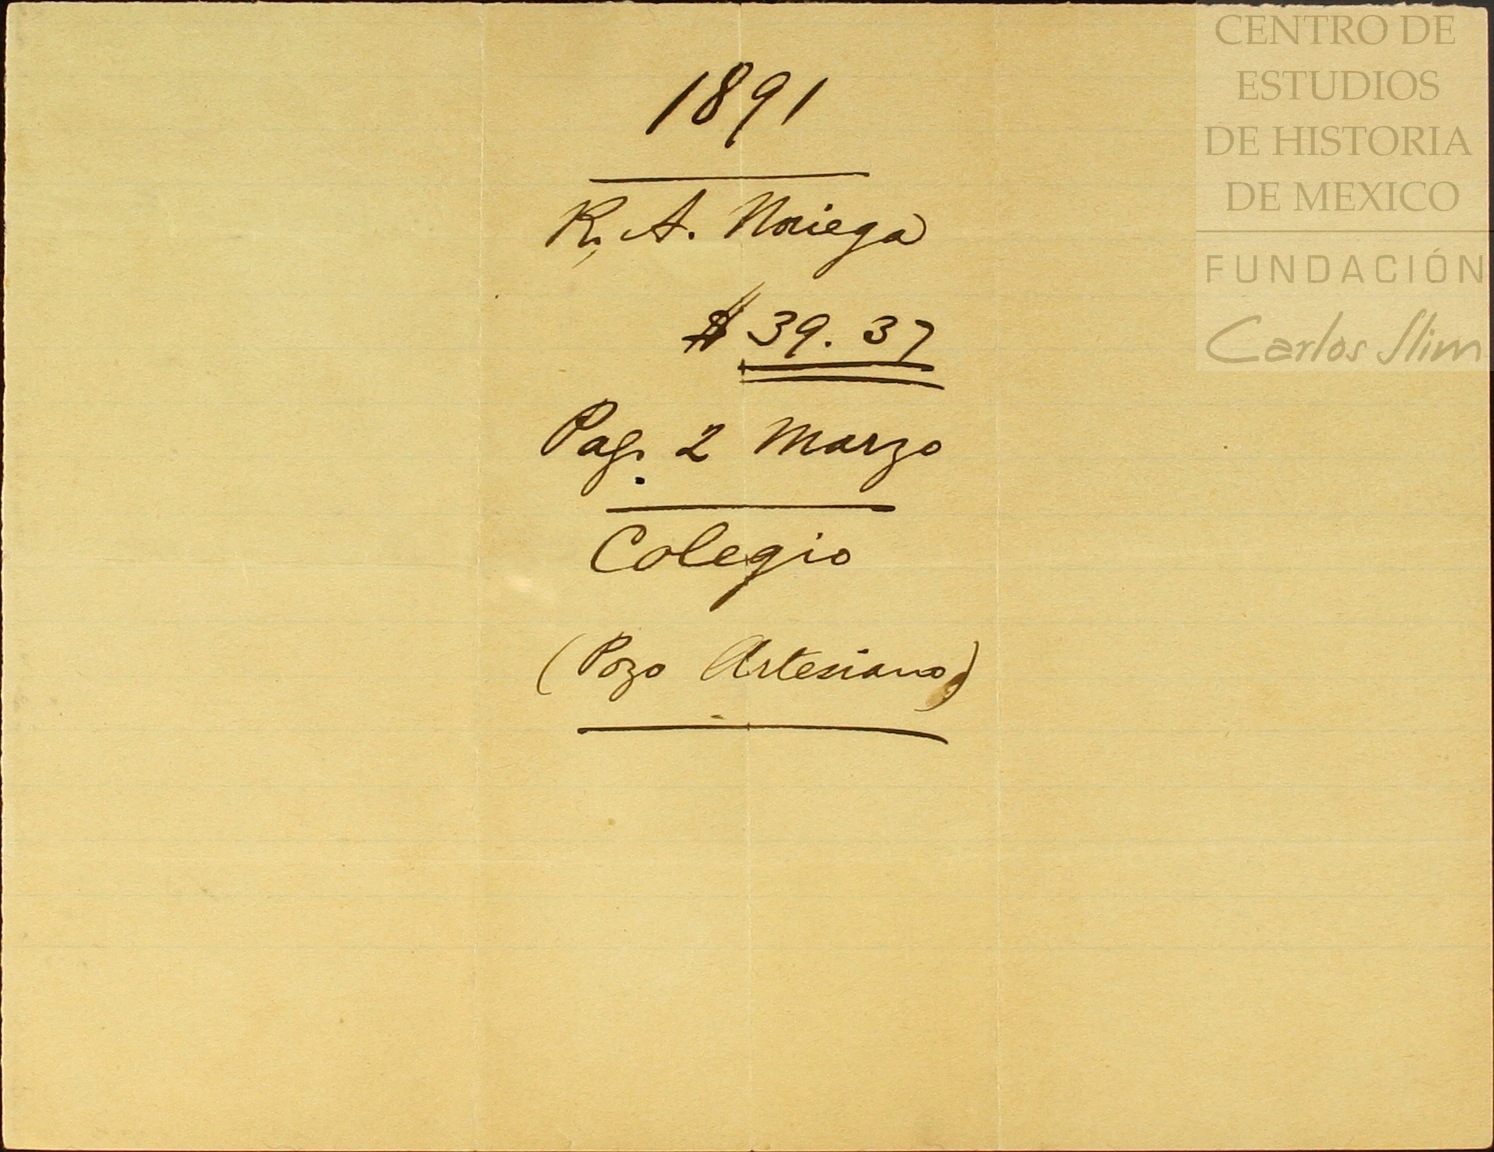 1891
R. A. Noriega
$ 39. 37
Pag. 2 Marzo
Colegio
(Pozo Artesiano)
CENTRO DE
ESTUDIOS
DE HISTORIA
DE MEXICO
FUNDACIÓN
Carlos Slim